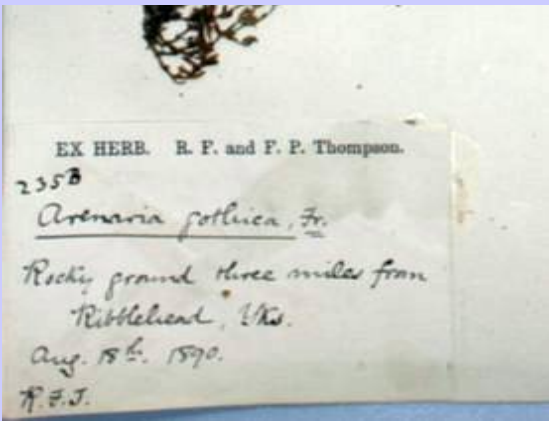 EX HERB. R. F. and F. P. Thompson.
235B
Arenaria gothica, Fr.
Rocky ground three miles from
Ribblehead, Yks.
Aug. 18th. 1890.
R.F.T.